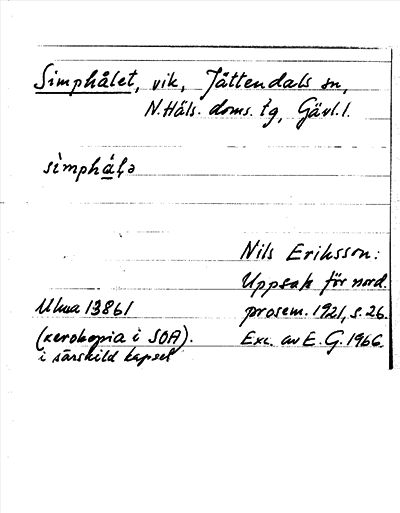 Simphålet, vik, Jättendals sn,
N. Häls. doms. tg, Gävl. l.
sìmphálə
Nils Eriksson:
Uppsats för nord.
Uluа 13861 prosem. 1921, s. 26.
(xerokopia i SOA). Exc. av E. G. 1966.
i särskild kapsel